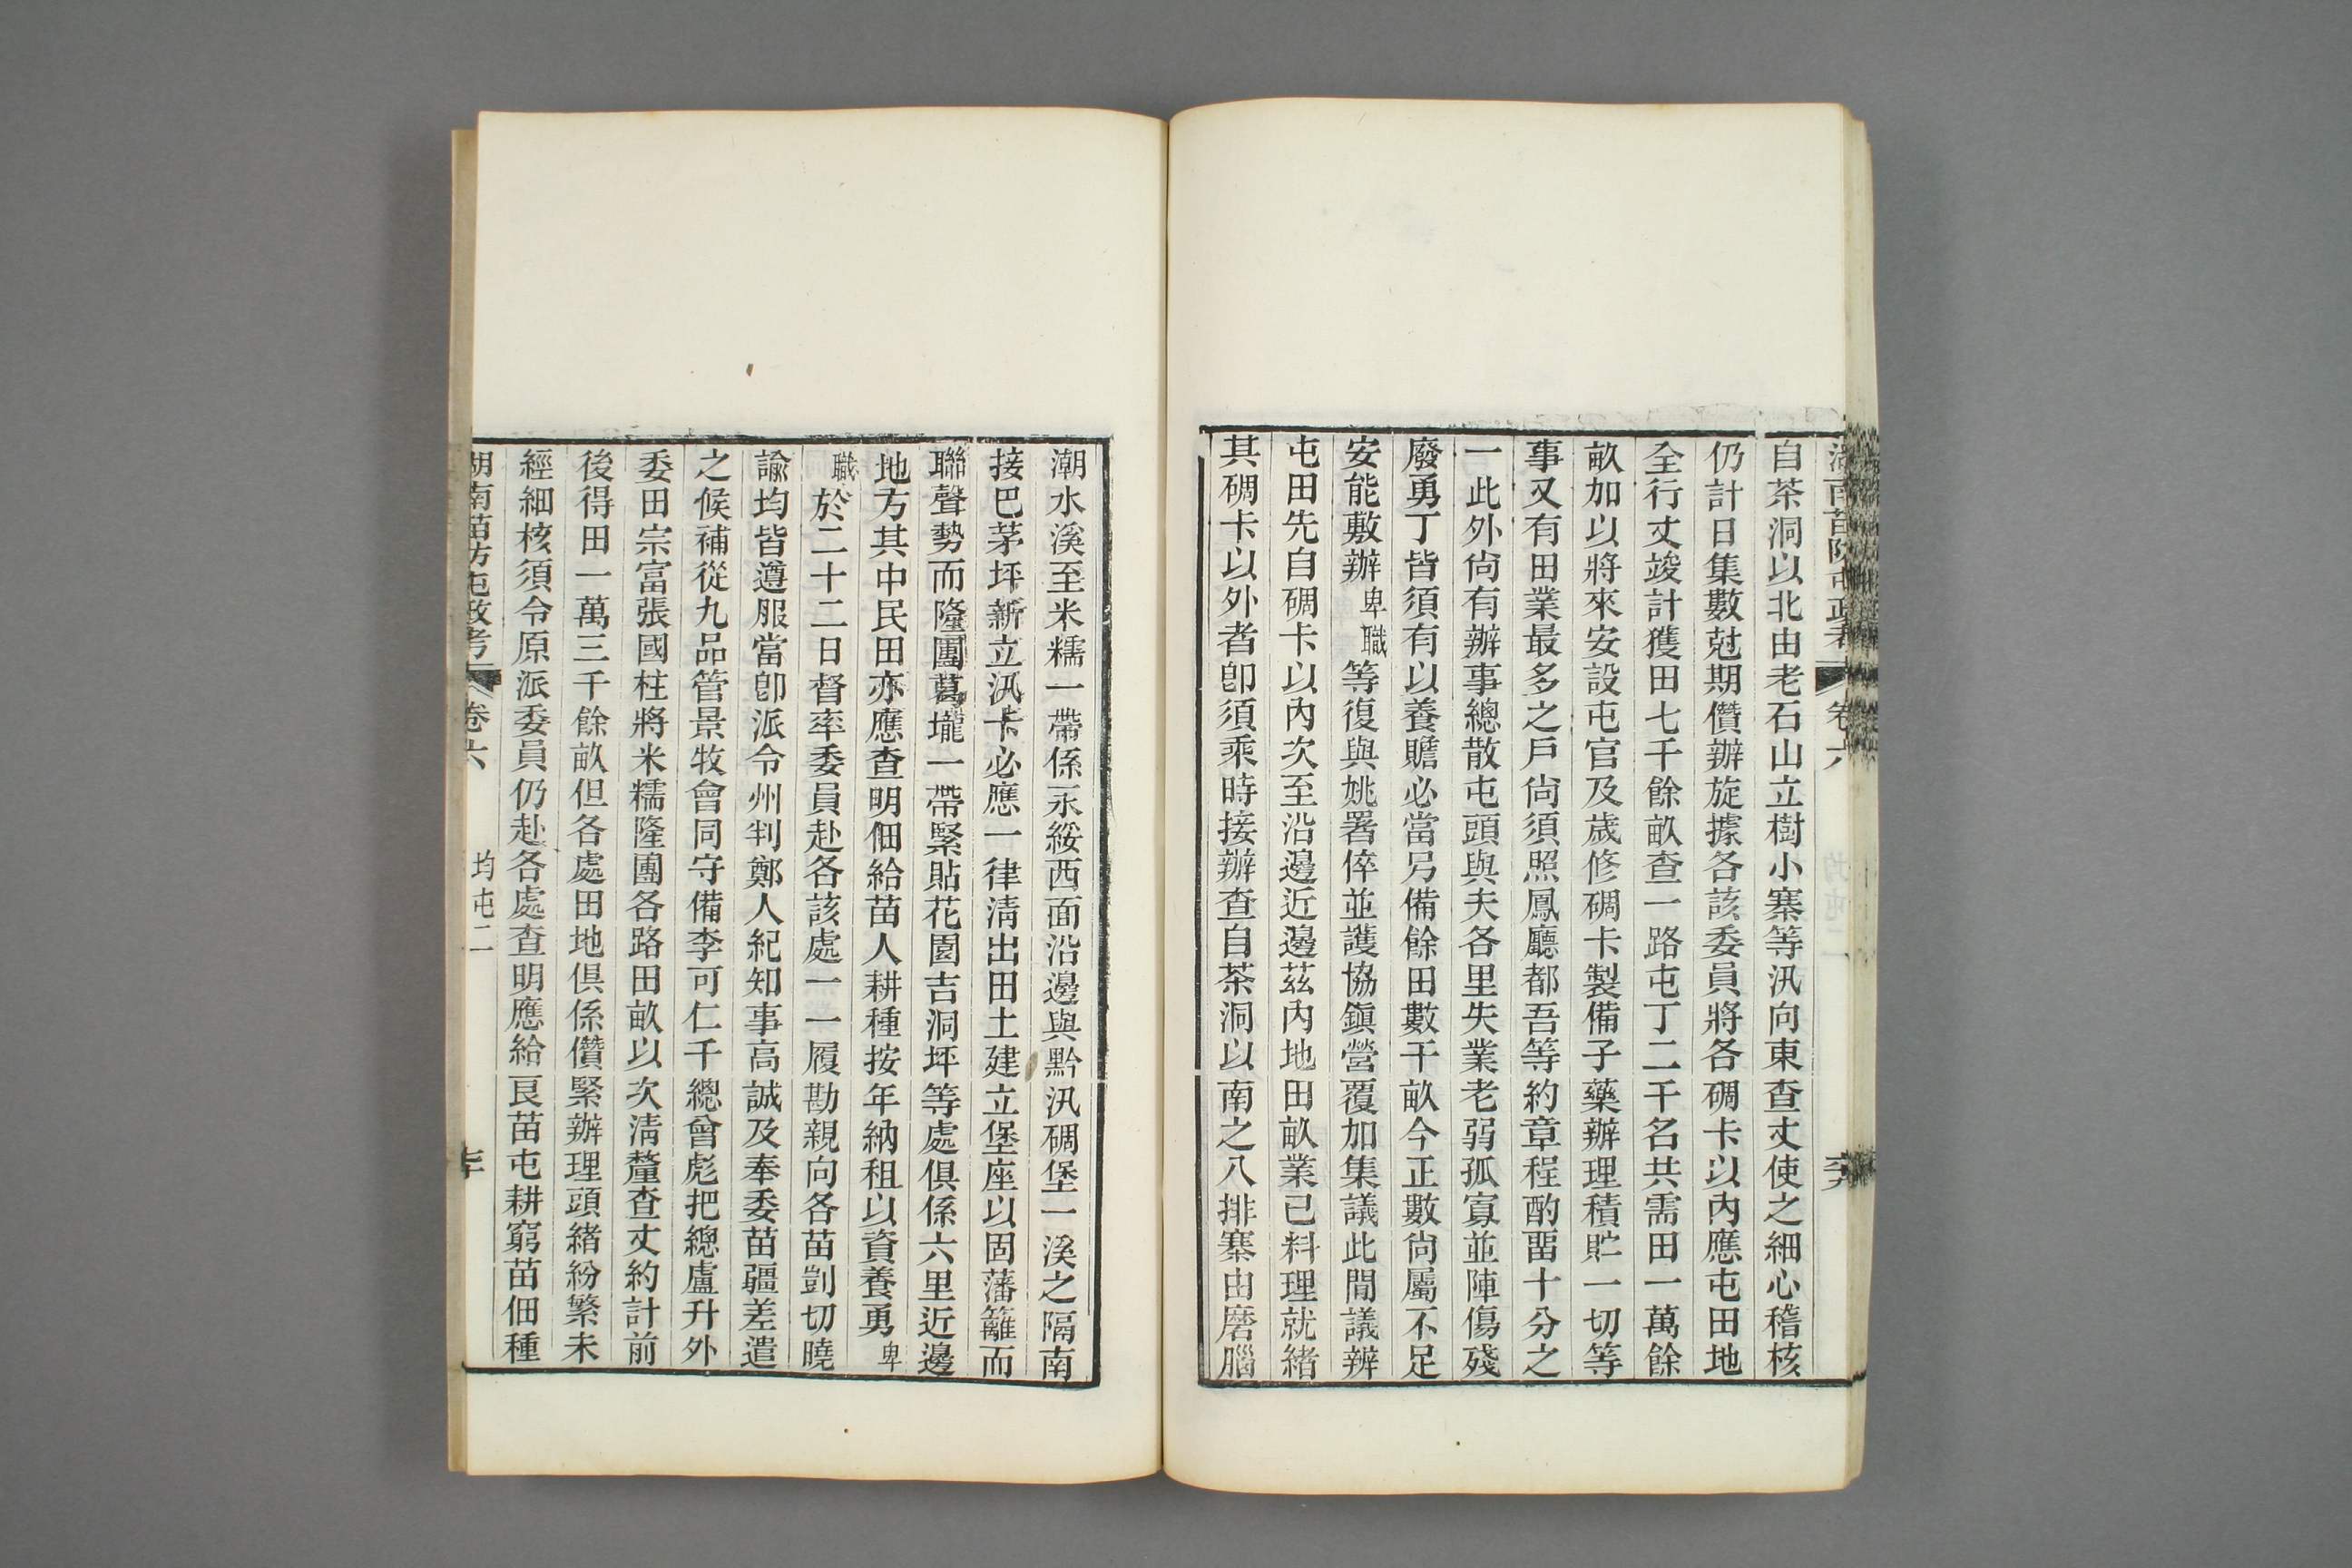 湖南苗防屯政考 卷六
自茶洞以北由老石山立樹小寨等汛向東查丈使之細心稽核
仍計日集數尅期儹辦旋據各該委員將各碉卡以內應屯田地
全行丈竣計獲田七千餘畝查一路屯丁二千名共需田一萬餘
畝加以將來安設屯官及歲修碉卡製備子藥辦理積貯一切等
事又有田業最多之戶尙須照鳳廳都吾等約章程酌畱十分之
一此外尙有辦事總散屯頭與夫各里失業老弱孤寡並陣傷殘
廢勇丁皆須有以養贍必當另備餘田數千畝今正數尙屬不足
安能敷辦卑職等復與姚署倅並護協鎭營覆加集議此閒議辦
屯田先自碉卡以內次至沿邊近邊茲內地田畝業已料理就緒
其碉卡以外者卽須乘時接辦查自茶洞以南之八排寨由磨腦
潮水溪至米糯一帶係永綏西面沿邊與黔汛碉堡一溪之隔南
接巴茅坪新立汛卡必應一律淸出田土建立堡座以固藩籬而
聯聲勢而隆團葛壠一帶緊貼花園吉洞坪等處俱係六里近邊
地方其中民田亦應查明佃給苗人耕種按年納租以資養勇卑
職於二十二日督率委員赴各該處一一履勘親向各苗剴切曉
諭均皆遵服當卽派令州判鄭人紀知事高誠及奉委苗疆差遣
之候補從九品管景牧會同守備李可仁千總曾彪把總盧升外
委田宗富張國柱將米糯隆團各路田畝以次淸釐查丈約計前
後得田一萬三千餘畝但各處田地俱係儹緊辦理頭緒紛繁未
經細核須令原派委員仍赴各處查明應給良苗屯耕窮苗佃種
湖南苗防屯政考 卷六 均屯二